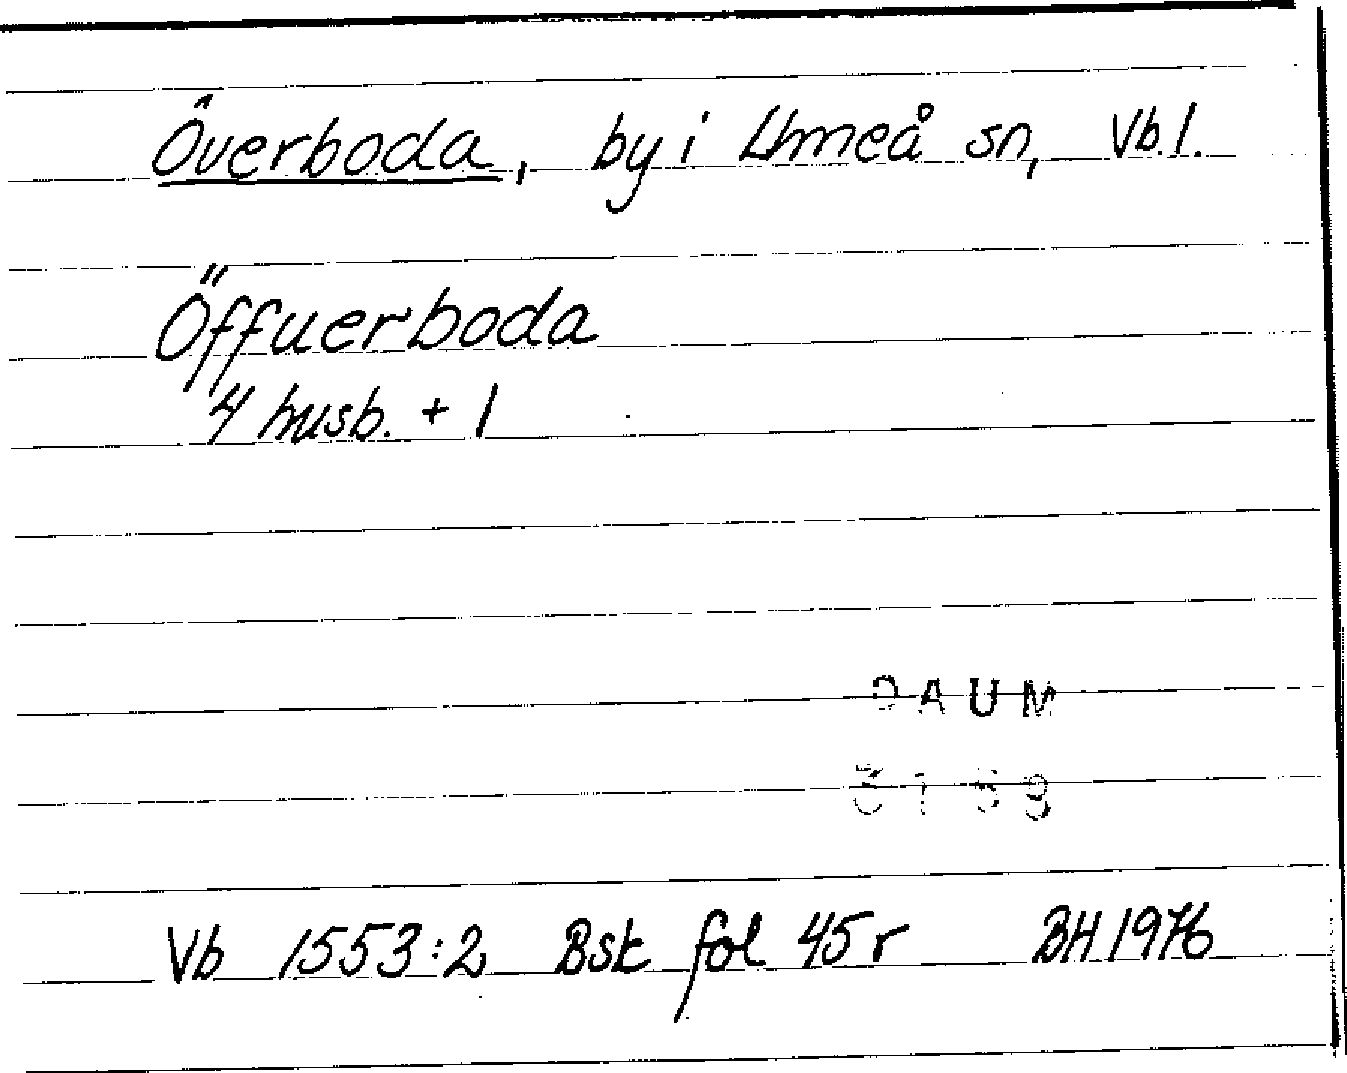 Överboda, by i Umeå sn, Vb.l.
Öffuerboda
4 husb. + 1
DAUM
3159
Vb 1553:2 Bsk fol 45 r BH 1976